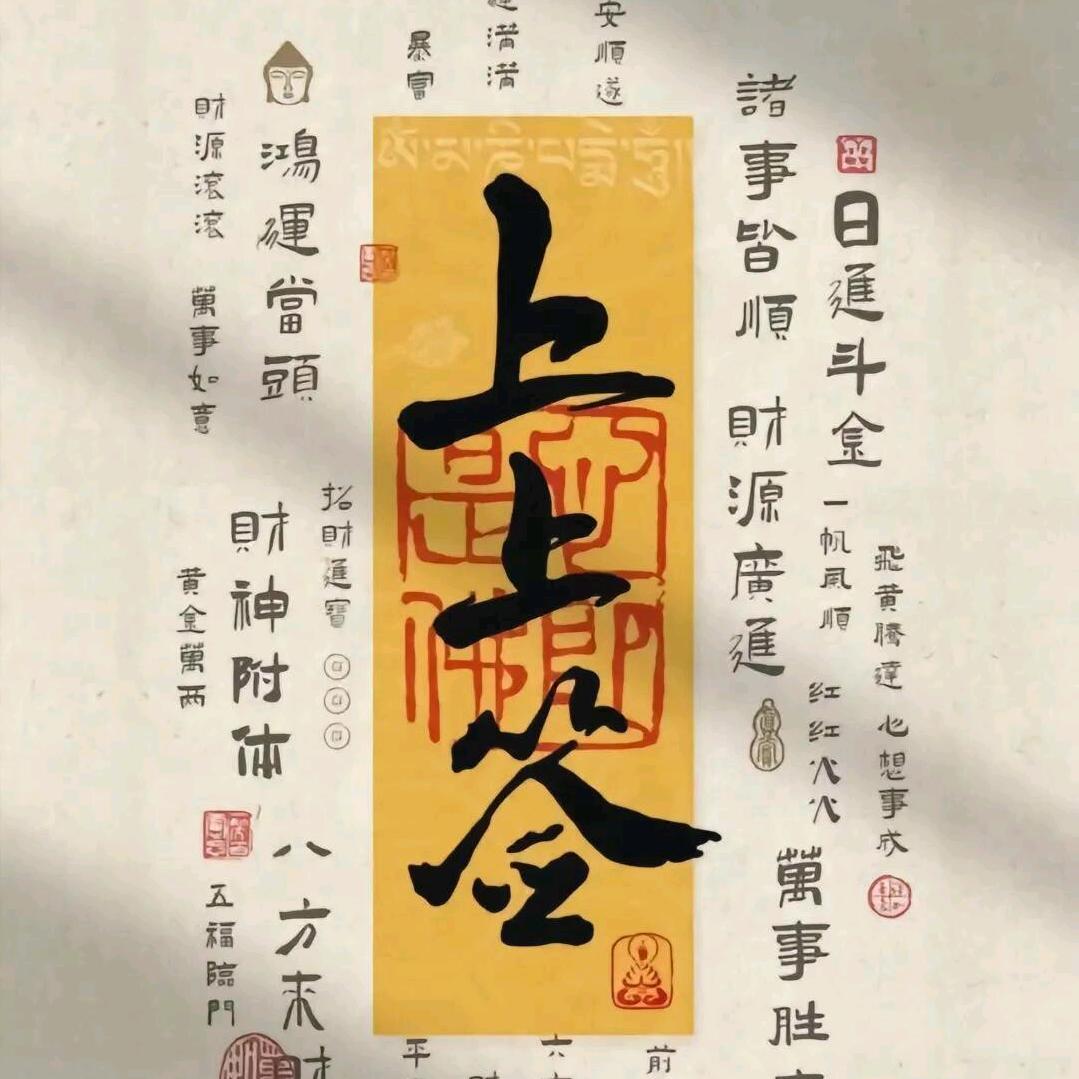 飛黄騰達
心想事成
日進斗金
一帆風順
红红火火
諸事皆順
財源廣進
萬事胜
安順遂
滿滿
暴富
ༀ་མ་ཎི་པདྨེ་ཧཱུྃ
上上签
心即是佛
前
六
平
招財進寶
鴻運當頭
財神附体
八方来財
財源滾滾
萬事如意
黄金萬两
五福臨門